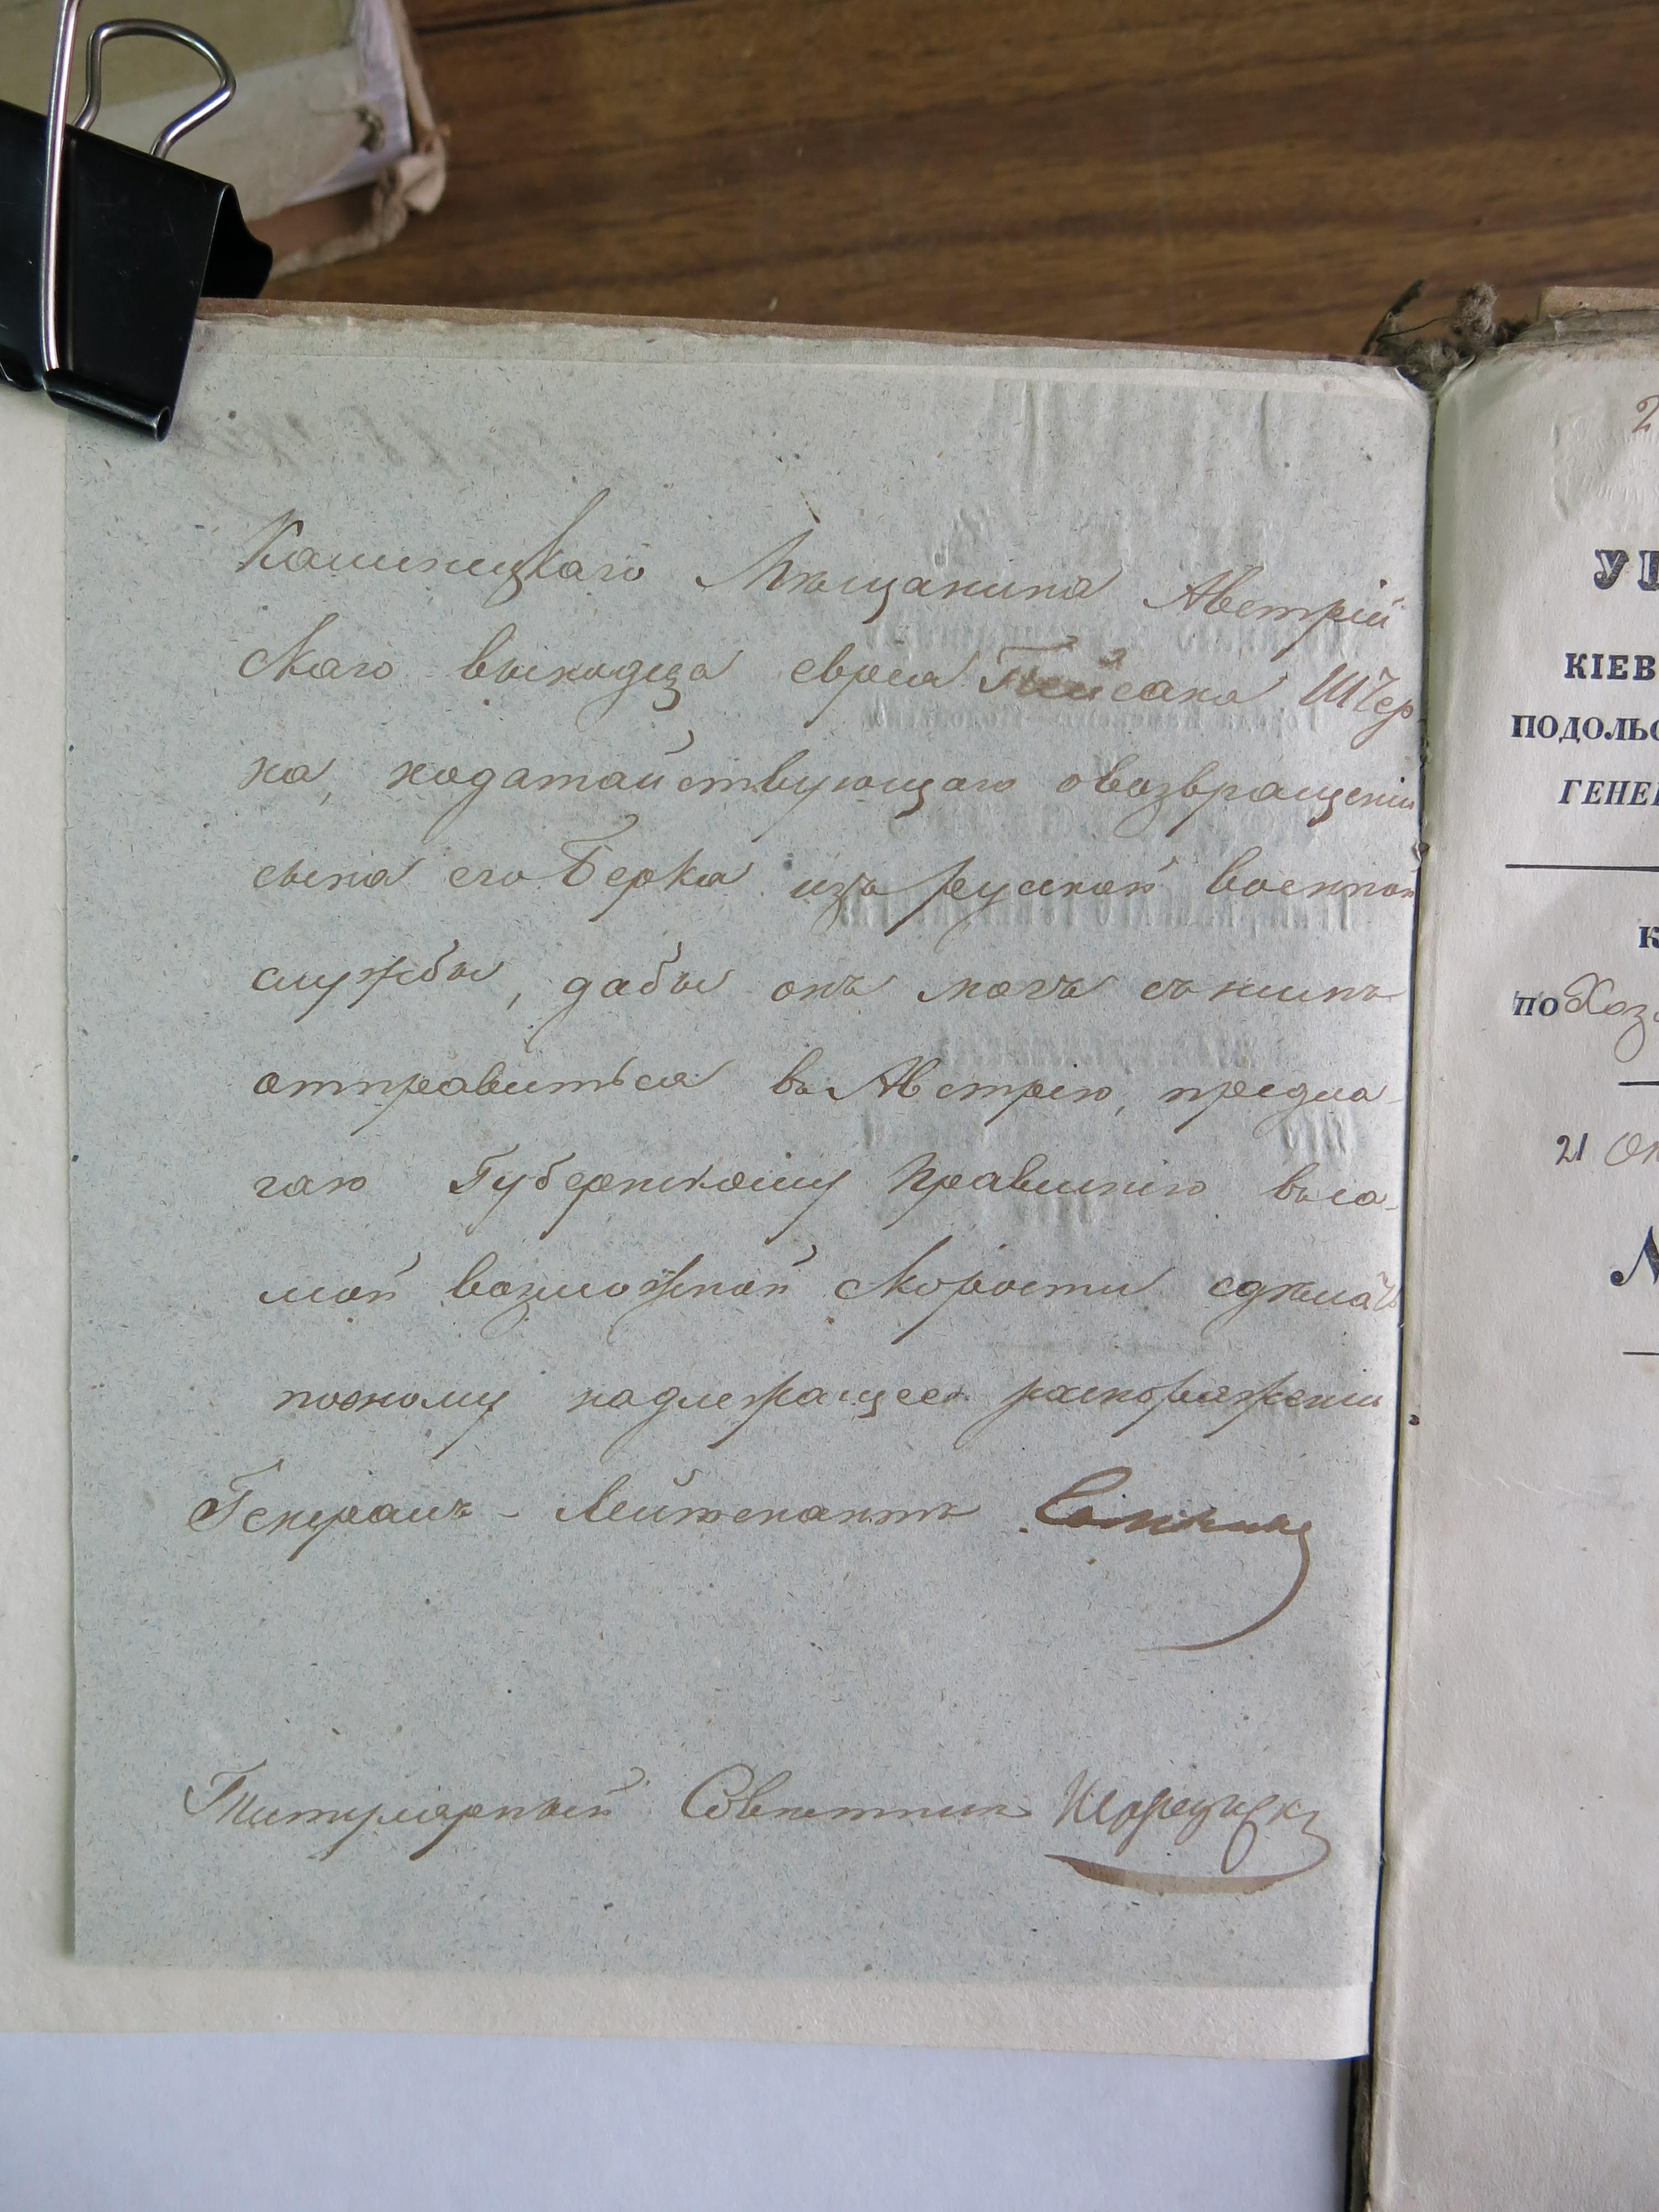 Каменецкаго Мѣщанина Австрій
скаго выходца еврея Пейсаха Штер-
на, ходатайствующаго о возвращеніи
сына его Берка изъ русской военной
службы, дабы онъ могъ съ нимъ
отправиться въ Австрію, предла-
гаю Губернскому Правленію въ са-
мой возможной скорости сдѣлать
по оному надлежащее распоряженіе
Генералъ-Лейтенантъ
Титулярный Совѣтникъ
2
КІЕВ
ПОДОЛЬС
ГЕНЕ
К
по Хоз
21 Ок
№